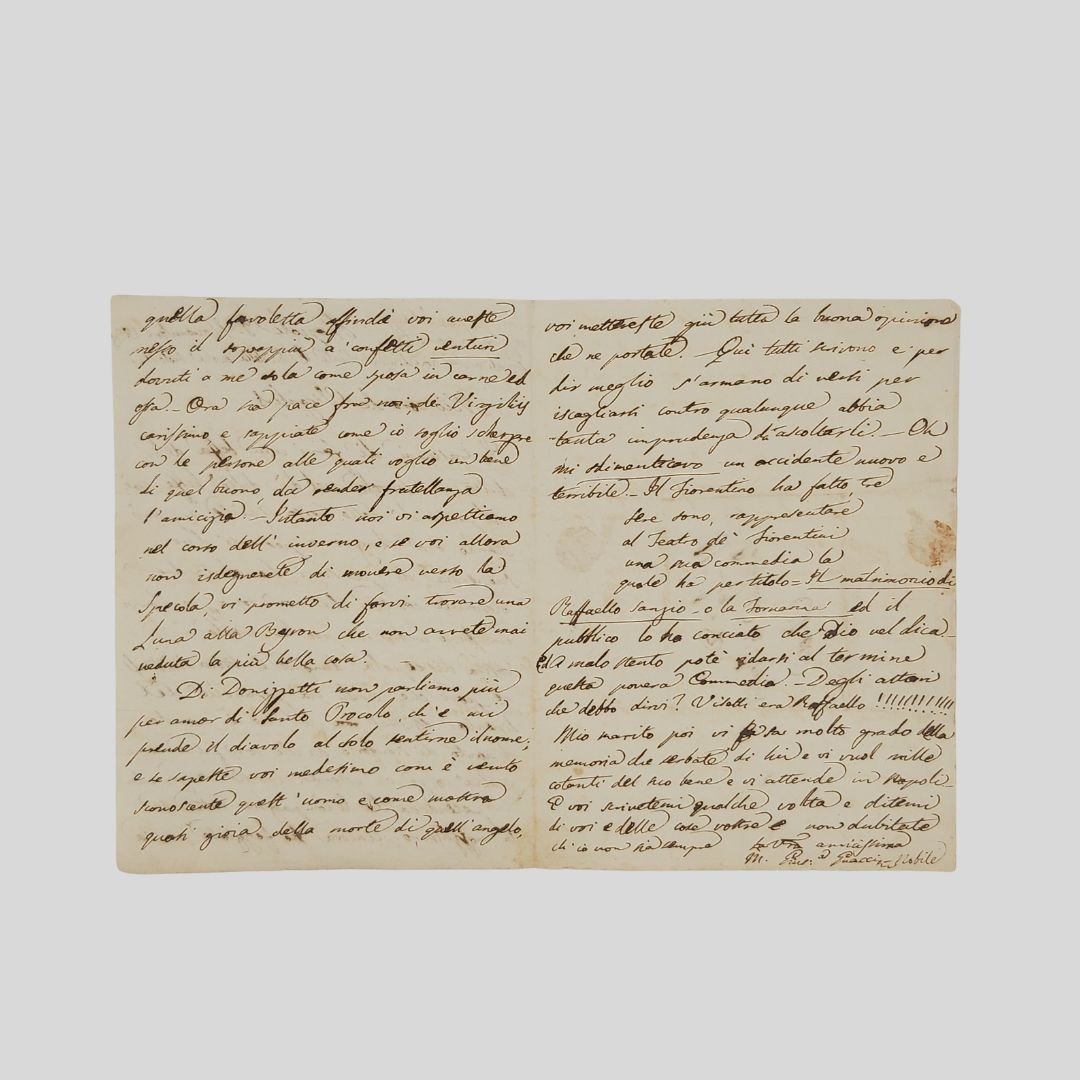 quella favoletta affinchè voi aveste
messo il soprappiù a' confetti venturi
dovuti a me sola come sposa in carne ed
ossa. Ora sia pace fra noi
carissimo e sappiate come io soglio
con le persone alle quali voglio un bene
di quel buono da render fratellanza
l'amicizia. - Intanto noi vi aspettiamo
nel corso dell' inverno, e se voi allora
non isdegnerete di movere verso la
Specola, vi prometto di farvi trovare una
Luna alla Byron che non avrete mai
veduta la più bella cosa.
Di Donizzetti non parliamo più
per amor di Santo Procolo, ch'e' mi
prende il diavolo al solo sentirne il nome;
e se sapeste voi medesimo com' è
sconoscente quest' uomo e come mostra
quasi gioia della morte di quell' angelo,
voi mettereste giù tutta la buona opinione
che ne portate. - Qui tutti scrivono e per
dir meglio s'armano di versi per
iscagliarsi contro qualunque abbia
tanta imprudenza d'ascoltarli. - Oh
mi dimenticavo un accidente nuovo e
terribile. - Il Fiorentino ha fatto, tre
sere sono, rappresentare
al Teatro de' Fiorentini
una sua commedia la
quale ha per titolo = Il matrimonio di
Raffaello Sanzio - o la Fornarina ed il
pubblico lo ha conciato che Dio vel dica -
Ed a malo stento potè ridursi al termine
questa povera Commedia. - Degli attori
che debbo dirvi? Visetti era Raffaello !!!!!!!!!!!
Mio marito poi vi sa molto grado della
memoria che serbate di lui e vi vuol mille
cotanti del suo bene e vi attende in Napoli -
E voi scrivetemi qualche volta e ditemi
di voi e delle cose vostre e non dubitate
ch' io non sia sempre la Vra amicissima
M. Gius.a Guacci Nobile